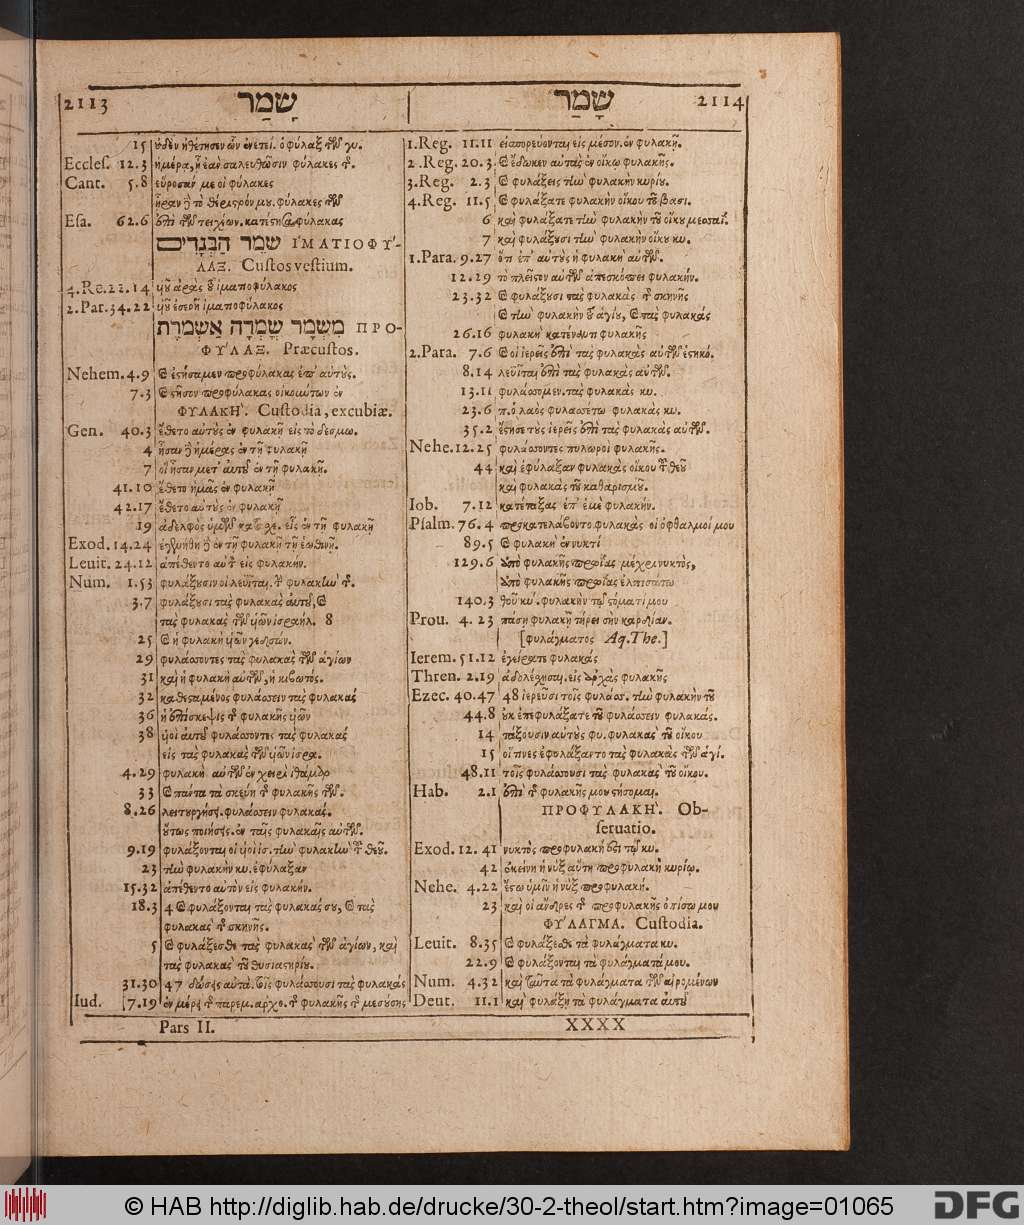 2113 שָׁמַר
15 ὐδὲν ἠθέτησεν ὧν ἐνετεί. ὁ φύλαξ τῶν γυ.
Eccleſ. 12.3 ἡμέρα, ᾗ ἐὰν σαλευθῶσιν φύλακες τ̃.
Cant. 5.8 εὕροσάν με οἱ φύλακες
ἦραν τὸ θέριστρόν μου. φύλακες τῶν
Eſa. 62.6 ἐπὶ τῶν τειχέων. κατέστησα φύλακας
שֹׁמֵר הַבְּגָדִים ἹΜΑΤΙΟΦΥ´-
ΛΑΞ. Cuſtos veſtium.
4.Re.22.14 ἱματιοφύλακος
2.Par.34.22 ἱματιοφύλακος
מִשְׁמָר שָׁמְרָה אַשְׁמֹרֶת ΠΡΟ-
ΦΥ´ΛΑΞ. Præcuſtos.
Nehem. 4.9 ἐστήσαμεν προφύλακας ἐπ' αὐτὺς.
7.3 στῆσον προφύλακας οἰκούντων ἐν
ΦΥΛΑΚΗ`. Cuſtodia, excubiæ.
Gen. 40.3 ἔθετο αὐτὺς ἐν φυλακῇ εἰς τὸ δεσμω.
4 ἦσαν ἡμέρας ἐν τῇ φυλακῇ
7 οἳ ἦσαν μετ' αὐτοῦ ἐν τῇ φυλακῇ.
41.10 ἔθετο ἡμᾶς ἐν φυλακῇ
42.17 ἔθετο αὐτὺς ἐν φυλακῇ
19 ἀδελφὸς ὑμῶν κατέχε. εἷς ἐν τῇ φυλακῇ
Exod. 14.24 ἐγενήθη ἐν τῇ φυλακῇ τῇ ἑωθινῇ.
Leuit. 24.12 ἀπέθεντο αὐτ εἰς φυλακήν.
Num. 1.53 φυλάξυσιν οἱ λευῖται. τ̃ φυλακὴν τ̃.
3.7 φυλάξυσι τὰς φυλακὰς αὐτοῦ, ϗ
τὰς φυλακὰς τῶν υἱῶν ἰσραήλ. 8
25 ϗ ἡ φυλακὴ υἱῶν γεδσών.
29 φυλάσσοντες τὰς φυλακὰς τῶν ἁγίων
31 καὶ ἡ φυλακὴ αὐτῶν, ἡ κιβωτὸς.
32 καθεσταμένος φυλάσσειν τὰς φυλακὰς
36 ἡ ἐπίσκεψις τ̃ φυλακῆς υἱῶν
38 υἱοὶ αὐτοῦ φυλάσσοντες τὰς φυλακὰς
εἰς τὰς φυλακὰς τῶν υἱῶν ἰσρα.
4.29 φυλακὴ αὐτῶν ἐν χειρὶ ἰθάμαρ
33 ϗ πάντα τὰ σκεύη τ̃ φυλακῆς τῶν.
8.26 λειτουργήσ. φυλάσσειν φυλακάς.
ὕτως ποιήσεις. ἐν ταῖς φυλακαῖς αὐτῶν.
9.19 φυλάξονται οἱ υἱοὶ ἰσ. τὴν φυλακὴν τ̃ θεῦ.
23 τὴν φυλακὴν κυ. ἐφύλαξαν
15.32 ἀπέθεντο αὐτὸν εἰς φυλακήν.
18.3 4 ϗ φυλάξονται τὰς φυλακάς σου, ϗ τὰς
φυλακὰς τ̃ σκηνῆς.
5 ϗ φυλάξεσθε τὰς φυλακὰς τῶν ἁγίων, καὶ
τὰς φυλακὰς τοῦ θυσιαστηρίυ.
31.30 47 δώσεις αὐτὰ. τοῖς φυλάσσουσι τὰς φυλακάς
Iud. 7.19 ἐν μέρει τ̃ παρεμ. ἀρχο. τ̃ φυλακῆς τ̃ μεσύσης
Pars II.
שָׁמַר 2114
1.Reg. 11.11 εἰσπορεύονται εἰς μέσον. ἐν φυλακῇ.
2.Reg. 20.3 ϗ ἔδωκεν αὐτὰς ἐν οἴκῳ φυλακῆς.
3.Reg. 2.3 ϗ φυλάξεις τὴν φυλακὴν κυρίυ.
4.Reg. 11.5 ϗ φυλάξατε φυλακὴν οἴκου τοῦ βασι.
6 καὶ φυλάξατε τὴν φυλακὴν τοῦ οἴκυ
7 καὶ φυλάξυσι τὴν φυλακὴν οἴκυ κυ.
1.Para. 9.27 ὅτι ἐπ' αὐτὺς ἡ φυλακὴ αὐτῶν.
12.29 τὸ πλεῖστον αὐτῶν ἀπεσκόπει φυλακήν.
23.32 ϗ φυλάξυσι τὰς φυλακὰς τ̃ σκηνῆς
ϗ τὴν φυλακὴν τ̃ ἁγίυ, ϗ τὰς φυλακάς
26.16 φυλακὴ κατέναντι φυλακῆς
2.Para. 7.6 ϗ οἱ ἱερεῖς ἐπὶ τὰς φυλακὰς αὐτῶν ἑστηκό.
8.14 λευῖται ἐπὶ τὰς φυλακὰς αὐτῶν.
13.11 φυλάσσομεν. τὰς φυλακὰς κυ.
23.6 π.ὁ λαὸς φυλασσέτω φυλακὰς κυ.
35.2 ἔστησε τὺς ἱερεῖς ἐπὶ τὰς φυλακὰς αὐτῶν.
Nehe. 12.25 φυλάσσοντες πυλωροὶ φυλακῆς.
44 καὶ ἐφύλαξαν φυλακὰς οἴκου τ̃ θεῦ
καὶ φυλακὰς τοῦ καθαρισμῦ.
Iob. 7.12 κατέταξας ἐπ' ἐμὲ φυλακήν.
Pſalm. 76.4 προκατελάβοντο φυλακὰς οἱ ὀφθαλμοί μου
89.5 ϗ φυλακὴ ἐν νυκτί
129.6 ἀπὸ φυλακῆς πρωΐας μέχρι νυκτὸς,
ἀπὸ φυλακῆς πρωΐας ἐλπισάτω
140.3 θοῦ κύ. φυλακὴν τῷ στόματί μου
Prou. 4. 23 πάσῃ φυλακῇ τήρει σὴν καρδίαν.
[φυλάγματος Aq. The.]
Ierem. 51.12 ἐγείρατε φυλακάς
Thren. 2.19 ἀδολέσχησαι. εἰς ἀρχὰς φυλακῆς
Ezec. 40.47 48 ἱερεῦσι τοῖς φυλάσσ. τὴν φυλακὴν τοῦ
44.8 ὐκ ἐπεφυλάξατε τοῦ φυλάσσειν φυλακάς.
14 τάξουσιν αὐτὺς φυ. φυλακὰς τοῦ οἴκου
15 οἵτινες ἐφυλάξαντο τὰς φυλακὰς τῶν ἁγί.
48.11 τοῖς φυλάσσουσι τὰς φυλακὰς τοῦ οἴκου.
Hab. 2.1 ἐπὶ τ̃ φυλακῆς μου στήσομαι.
ΠΡΟΦΥΛΑΚΗ`. Ob-
ſeruatio.
Exod. 12. 41 νυκτὸς προφυλακή ἐστι τῷ κυ.
42 ἐκείνη ἡ νὺξ αὕτη προφυλακὴ κυρίῳ.
Nehe. 4.22 ἔστω ὑμῖν ἡ νὺξ προφυλακή.
23 καὶ οἱ ἄνδρες τ̃ προφυλακῆς ὀπίσω μου
ΦΥ´ΛΑΓΜΑ. Cuſtodia.
Leuit. 8.35 ϗ φυλάξεσθε τὰ φυλάγματα κυ.
22.9 ϗ φυλάξονται τὰ φυλάγματά μου.
Num. 4.32 καὶ ταῦτα τὰ φυλάγματα τῶν αἰρομένων
Deut. 11.1 καὶ φυλάξῃ τὰ φυλάγματα αὐτοῦ
XXXX
© HAB http://diglib.hab.de/drucke/30-2-theol/start.htm?image=01065
DFG